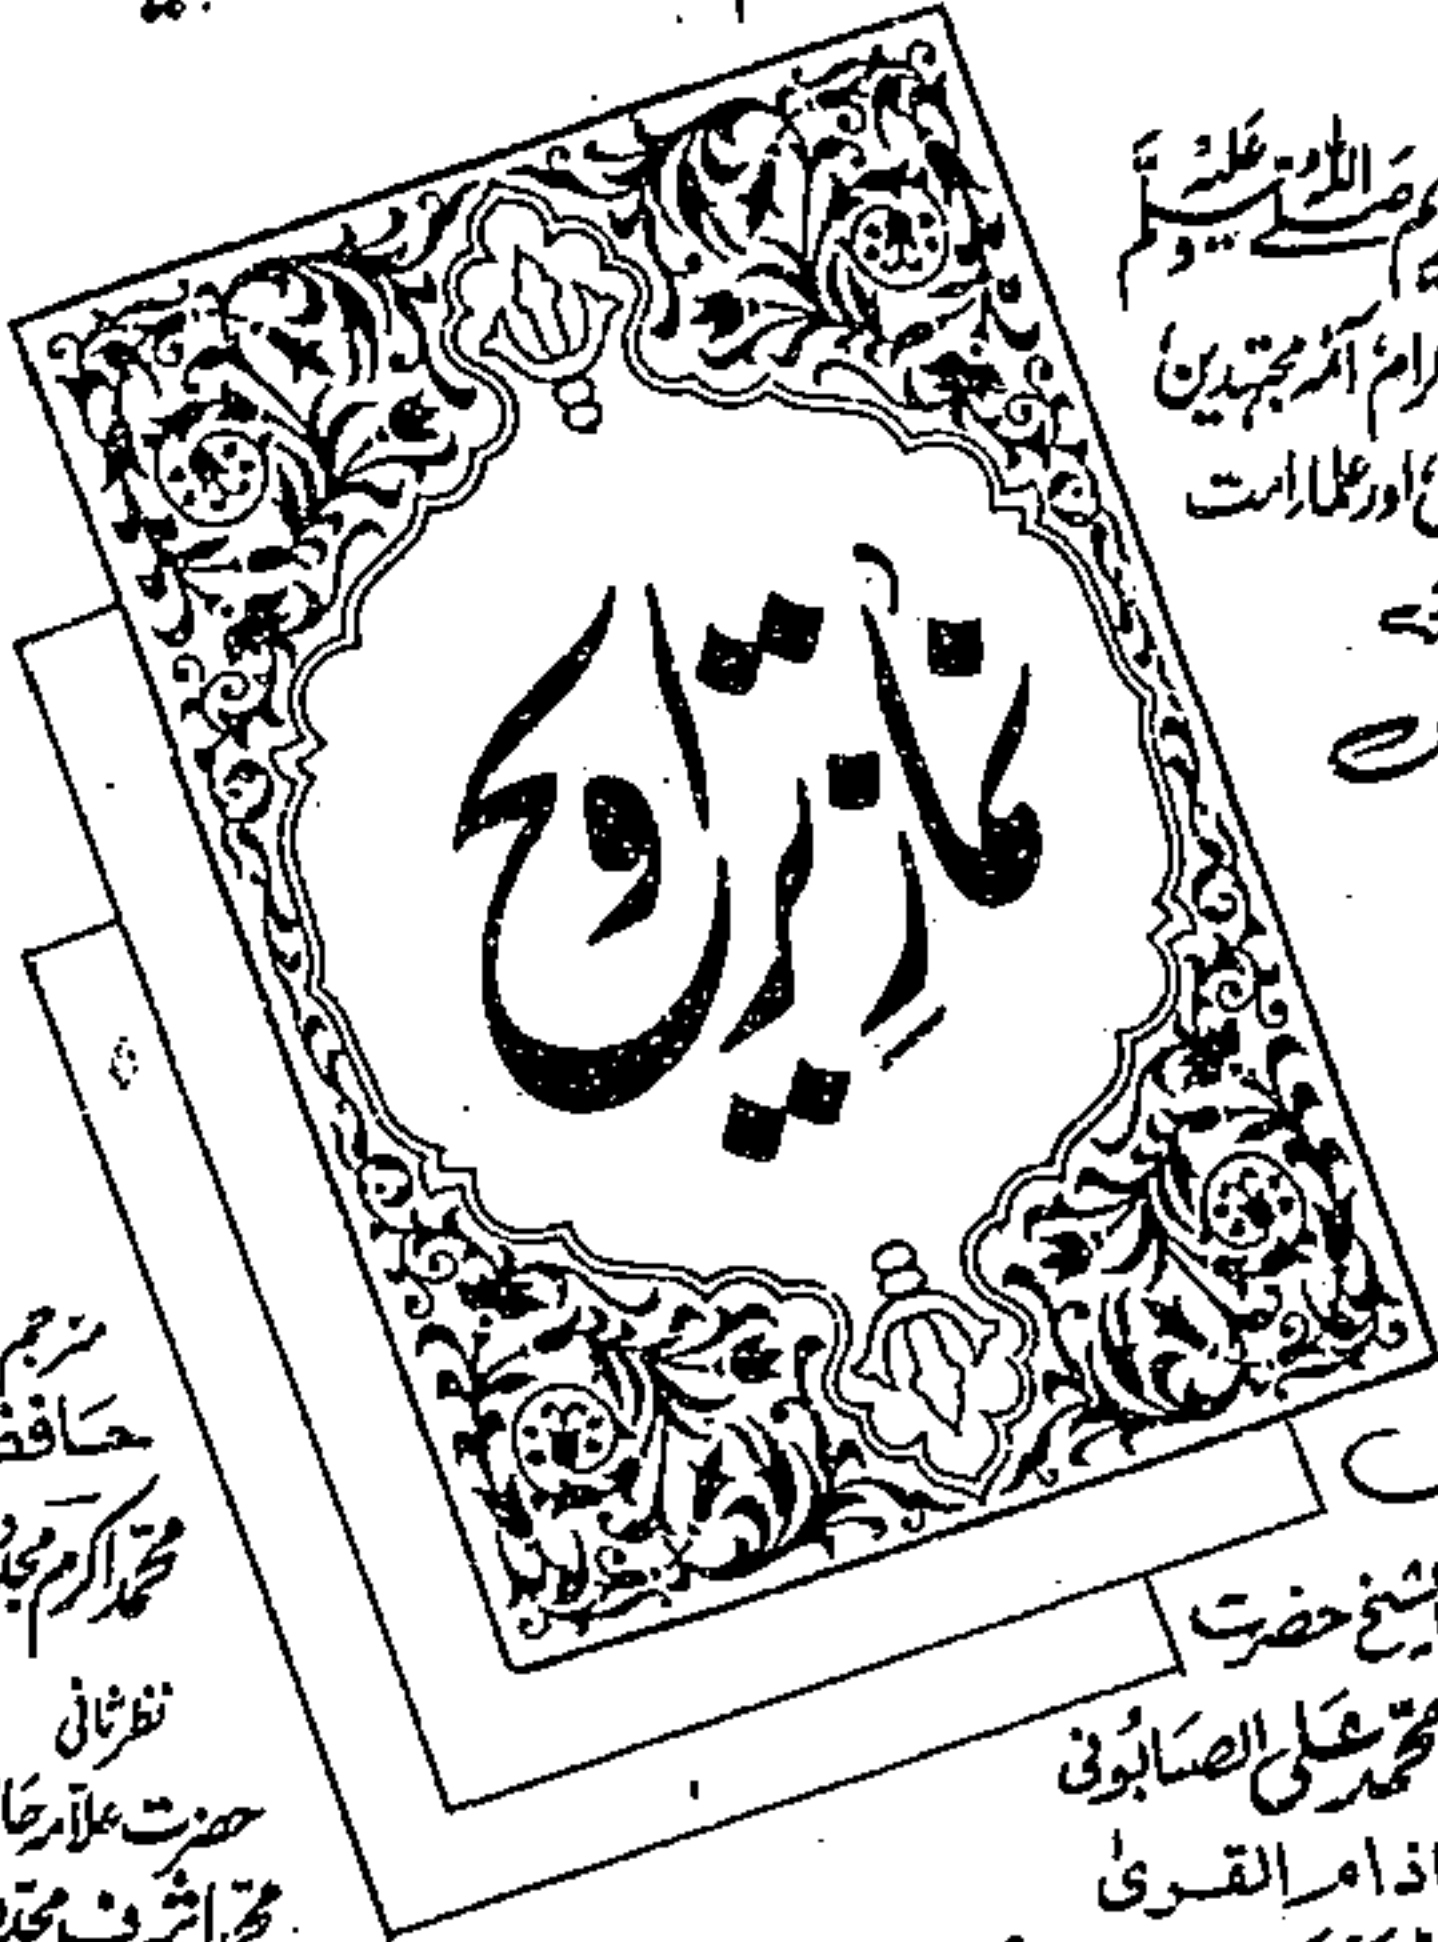 صلی اللہ علیہ وسلم
آئمہ مجتہدین
اور علماء امت
نماز تراویح
مترجم
حافظ
محمد اکرم
نظر ثانی
حضرت علامہ
محمد اشرف
الشیخ حضرت
محمد علی الصابونی
ام القریٰ